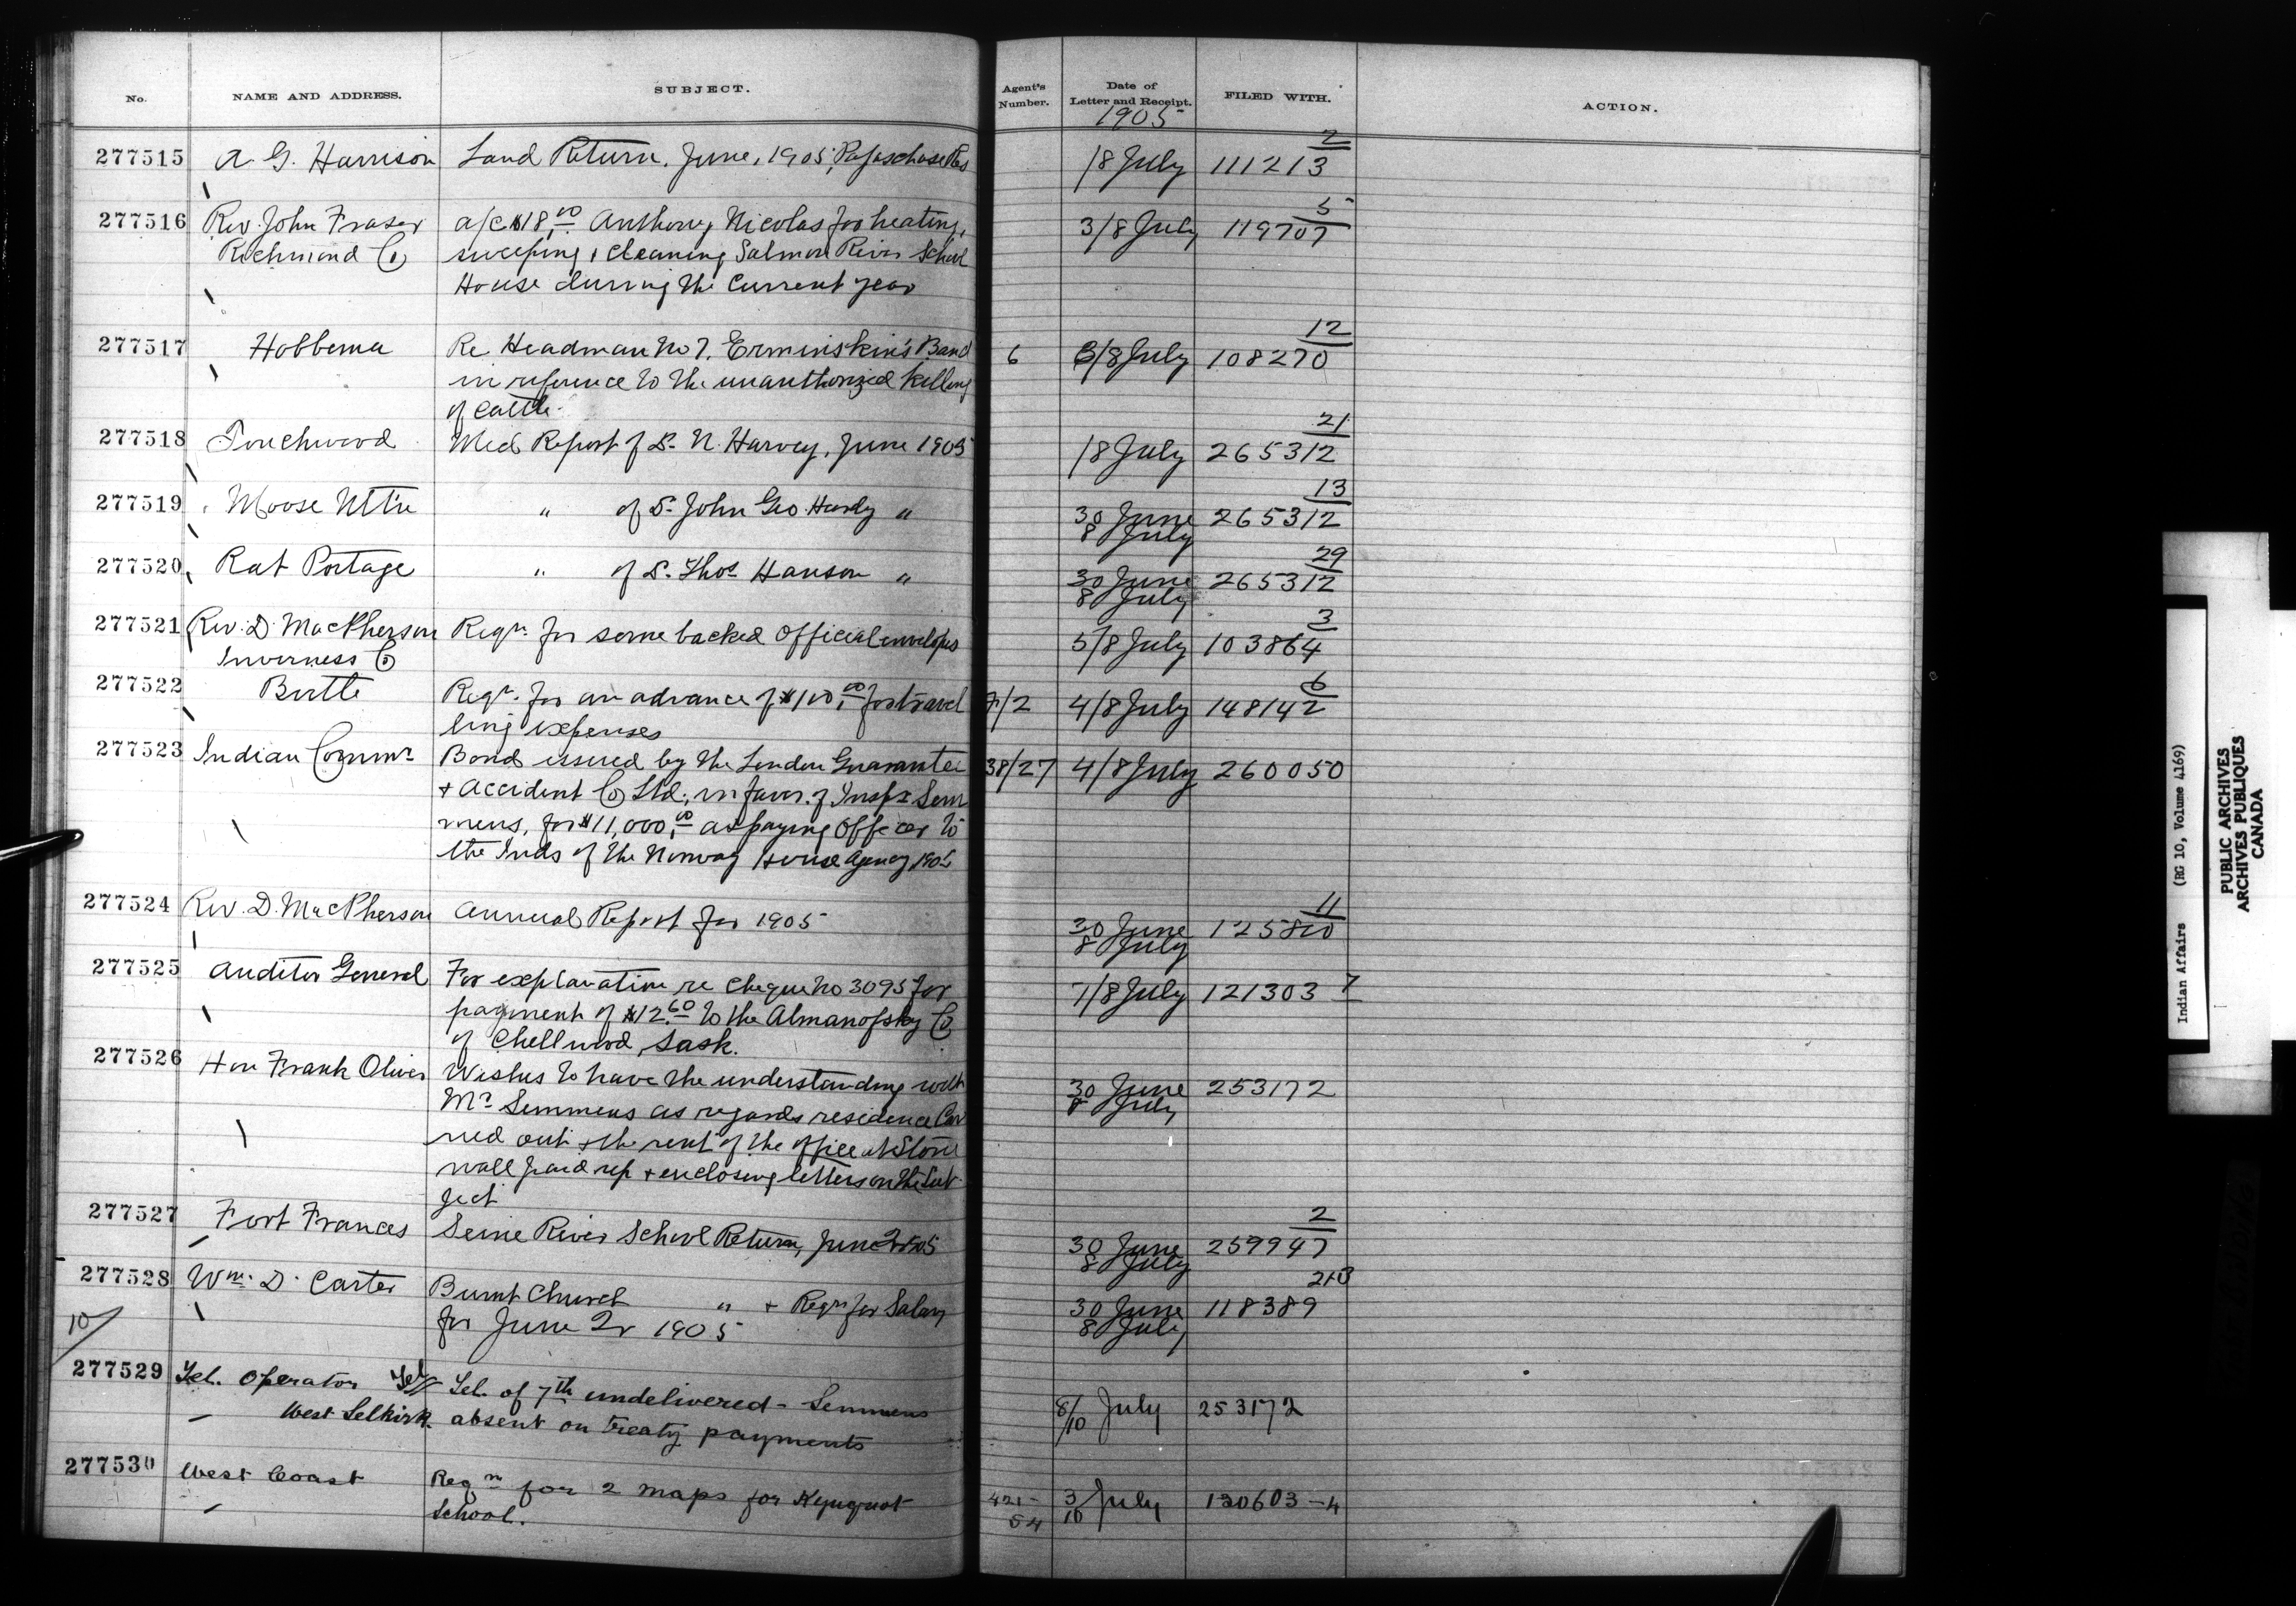 No. NAME AND ADDRESS. SUBJECT. Agent's Number. Date of Letter and Receipt. FILED WITH. ACTION.
1905
277515 A. G. Harrison Land Return, June, 1905, Papaschase Res 18 July 111213 2
277516 Rev. John Fraser a/c $18.00 Anthony Nicolas for heating, 3/8 July 119707 5
Richmond Co sweeping & cleaning Salmon River School
House during the current year
277517 Hobbema Re Headman No 7, Erminskin's Band 6 3/8 July 108270 12
in reference to the unauthorized killing
of cattle.
277518 Touchwood Med Report of Dr. N. Harvey, June 1905 18 July 265312 21
277519 Moose Mt'n " of Dr. John Geo Hardy " 30 June 265312 13
8 July
277520 Rat Portage " of Dr. Thos Hanson " 30 June 265312 29
8 July
277521 Rev. D. MacPherson Reqn. for some backed official envelopes 5/8 July 103864 3
Inverness Co
277522 Birtle Reqn. for an advance of $100.00 for travel 7/2 4/8 July 148142 6
ling expenses
277523 Indian Commr Bond issued by the London Guarantee 38/27 4/8 July 260050
& Accident Co Ltd., in favor of Inspr Sem
mens, for $11,000.00 as paying Officer to
the Inds of the Norway House Agency 1905
277524 Rev. D. MacPherson Annual Report for 1905 30 June 125810 11
8 July
277525 Auditor General For explanation re cheque No 3095 for 7/8 July 121303 7
payment of $12.60 to the Almanofsky Co
of Chellwood, Sask.
277526 Hon Frank Oliver Wishes to have the understanding with 30 June 253172
8 July
Mr Semmens as regards residence Car
ried out & the rent of the office at Stone
wall paid up & enclosing letters on the sub
ject
277527 Fort Frances Seine River School Return, June Qr 1905 30 June 259947 2
8 July
277528 Wm. D. Carter Burnt Church " & Reqn for Salary 30 June 118389 213
8 July
10 for June Qr 1905
277529 Tel. Operator Tel Tel. of 7th undelivered - Semmens 8/10 July 253172
West Selkirk absent on treaty payments
277530 West Coast Reqn for 2 maps for Kyuquot 421-54 3/10 July 130603-4
School.
Indian Affairs (RG 10, Volume 4169)
PUBLIC ARCHIVES
ARCHIVES PUBLIQUES
CANADA